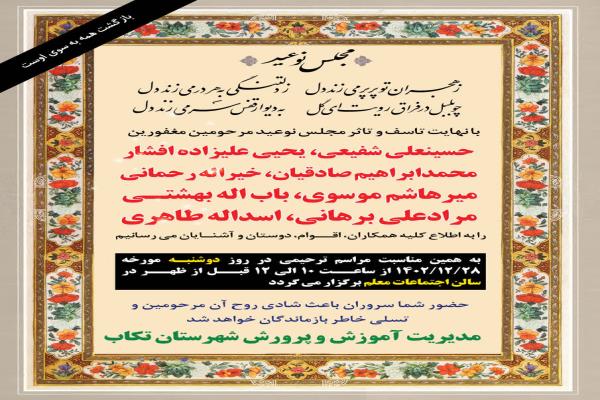 بازگشت همه به سوی اوست
مجلس نوعید
ز هجران تو پرپر می زند دل
ز دلتنگی به هر در می زند دل
چو بلبل در فراق روت ای گل
به دیوار قفس سر می زند دل
با نهایت تاسف و تاثر مجلس نوعید مرحومین مغفورین
حسینعلی شفیعی، یحیی علیزاده افشار
محمدابراهیم صادقیان، خیراله رحمانی
میرهاشم موسوی، باب اله بهشتی
مرادعلی برهانی، اسداله طاهری
را به اطلاع کلیه همکاران، اقوام، دوستان و آشنایان می رسانیم
به همین مناسبت مراسم ترحیمی در روز دوشنبه مورخه
۱۴۰۲/۱۲/۲۸ از ساعت ۱۰ الی ۱۲ قبل از ظهر در
سالن اجتماعات معلم برگزار می گردد
حضور شما سروران باعث شادی روح آن مرحومین و
تسلی خاطر بازماندگان خواهد شد
مدیریت آموزش و پرورش شهرستان تکاب